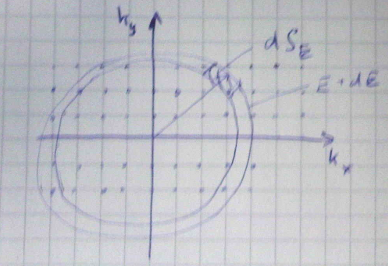 k_y
dS_E
E + dE
k_x